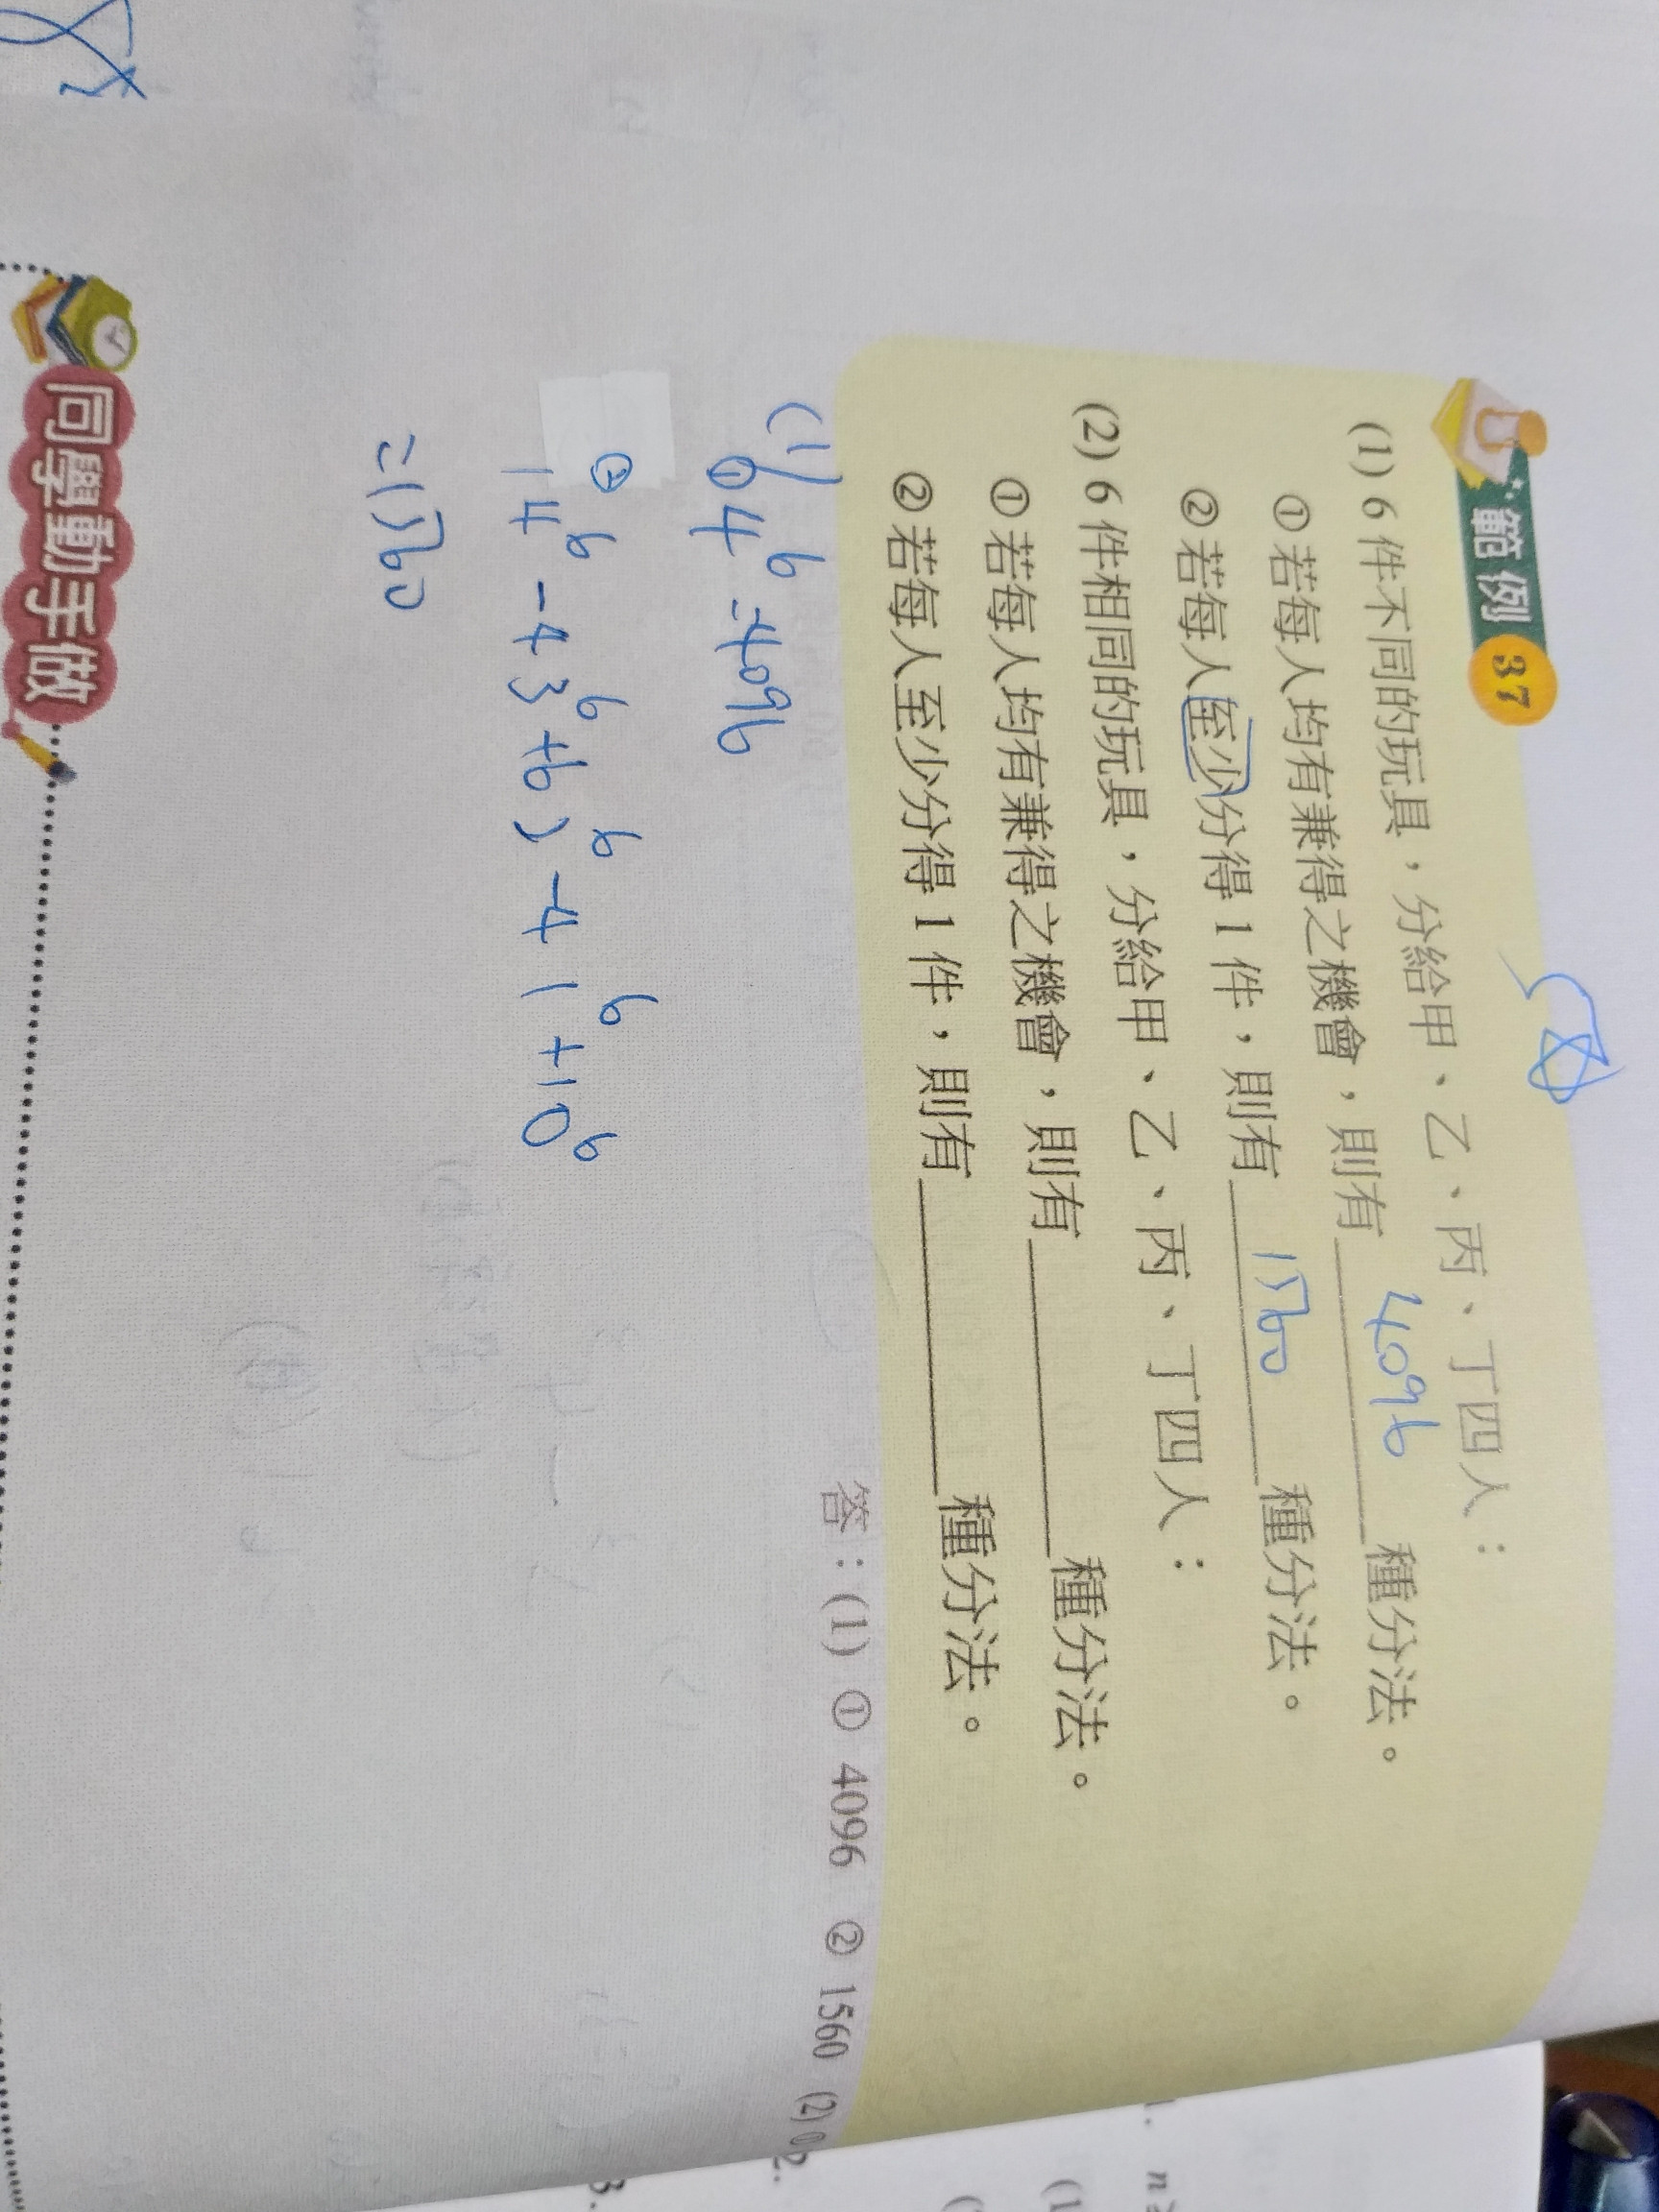 範例 37
(1) 6 件不同的玩具，分給甲、乙、丙、丁四人：
①若每人均有兼得之機會，則有 4096 種分法。
②若每人至少分得 1 件，則有 1560 種分法。
(2) 6 件相同的玩具，分給甲、乙、丙、丁四人：
①若每人均有兼得之機會，則有______種分法。
②若每人至少分得 1 件，則有______種分法。
答：(1) ① 4096 ② 1560 (2)
(1)
① 4⁶ = 4096
②
1 4⁶ - 4 3⁶ + 6 2⁶ - 4 1⁶ + 1 0⁶
= 1560
同學動手做